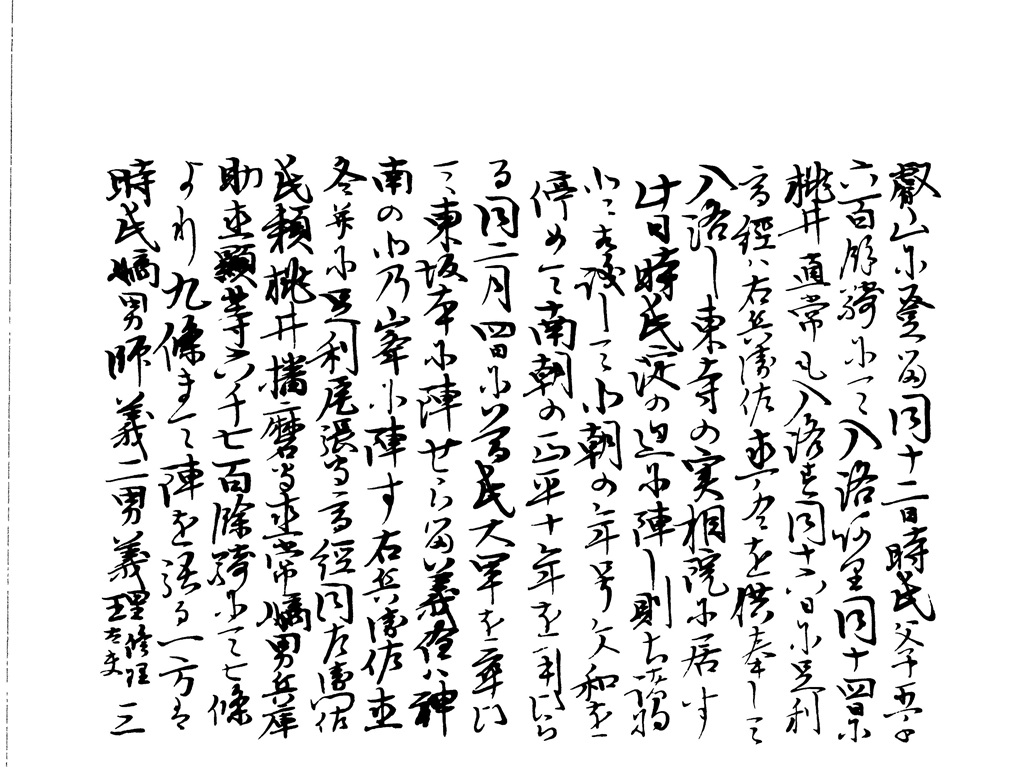 叡山に登る同十二日時氏父子五千
六百餘騎にて入洛
同十四日に
桃井直常も入洛す同十六日に足利
高經ハ右兵衛佐直冬を供奉して
入洛し東寺の実相院に居す
廿日時氏淀の辺に陣し則
北朝の年号文和を
停めて南朝の正平十年を
る同二月四日に尊氏大軍を率
て東坂本に陣せらる義詮ハ神
南の北乃峯に陣す右兵衛佐直
冬并に足利尾張守高經同左衛門佐
氏頼桃井播磨守直常嫡男兵庫
助直顯等六千七百餘騎にて七條
より九條まて陣を張る一方は
時氏嫡男師義二男義理修理大夫三